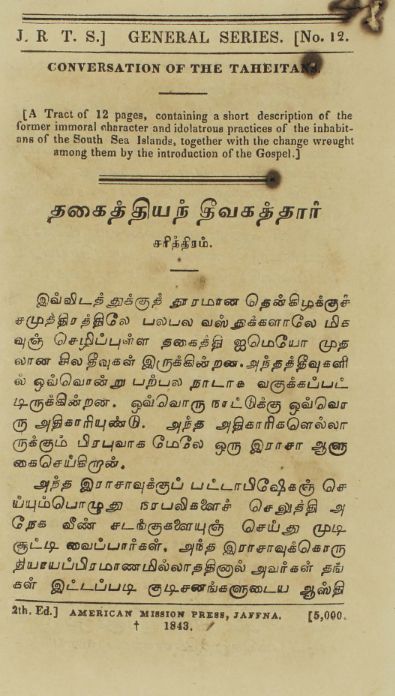 J. R T. S.] GENERAL SERIES. [No. 12.
CONVERSATION OF THE TAHEITANS.
[A Tract of 12 pages, containing a short description of the
former immoral character and idolatrous practices of the inhabit-
ans of the South Sea Islands, together with the change wrought
among them by the introduction of the Gospel.]
தகைத்தியந் தீவகத்தார்
சரித்திரம்.
இவ்விடத்துக்குத் தூரமான தென்கிழக்குச்
சமுத்திரத்திலே பலபல வஸ்துக்களாலே மிக
வுஞ் செழிப்புள்ள தகைத்தி ஐமெயோ முத
லான சிலதீவுகள் இருக்கின்றன. அந்தத்தீவுகளி
ல் ஒவ்வொன்று பற்பல நாடாக வகுக்கப்பட்
டிருக்கின்றன. ஒவ்வொரு நாட்டுக்கு ஒவ்வொ
ரு அதிகாரியுண்டு. அந்த அதிகாரிகளெல்லா
ருக்கும் பிரபுவாக மேலே ஒரு இராசா ஆளு
கைசெய்கிறான்.
அந்த இராசாவுக்குப் பட்டாபிஷேகஞ் செ
ய்யும்பொழுது நரபலிகளைச் செலுத்தி அ
நேக வீண் சடங்குகளையுஞ் செய்து முடி
சூட்டி வைப்பார்கள். அந்த இராசாவுக்கொரு
நியாயப்பிரமாணமில்லாததினால் அவர்கள் தங்
கள் இட்டப்படி குடிசனங்களுடைய ஆஸ்தி
2th. Ed.] AMERICAN MISSION PRESS, JAFFNA. [5,000.
† 1843.